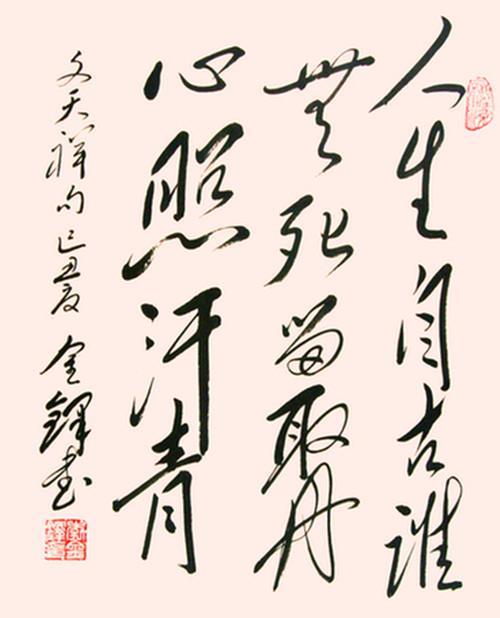 人生自古谁
无死留取丹
心照汗青
文天祥句己丑夏
金铎书